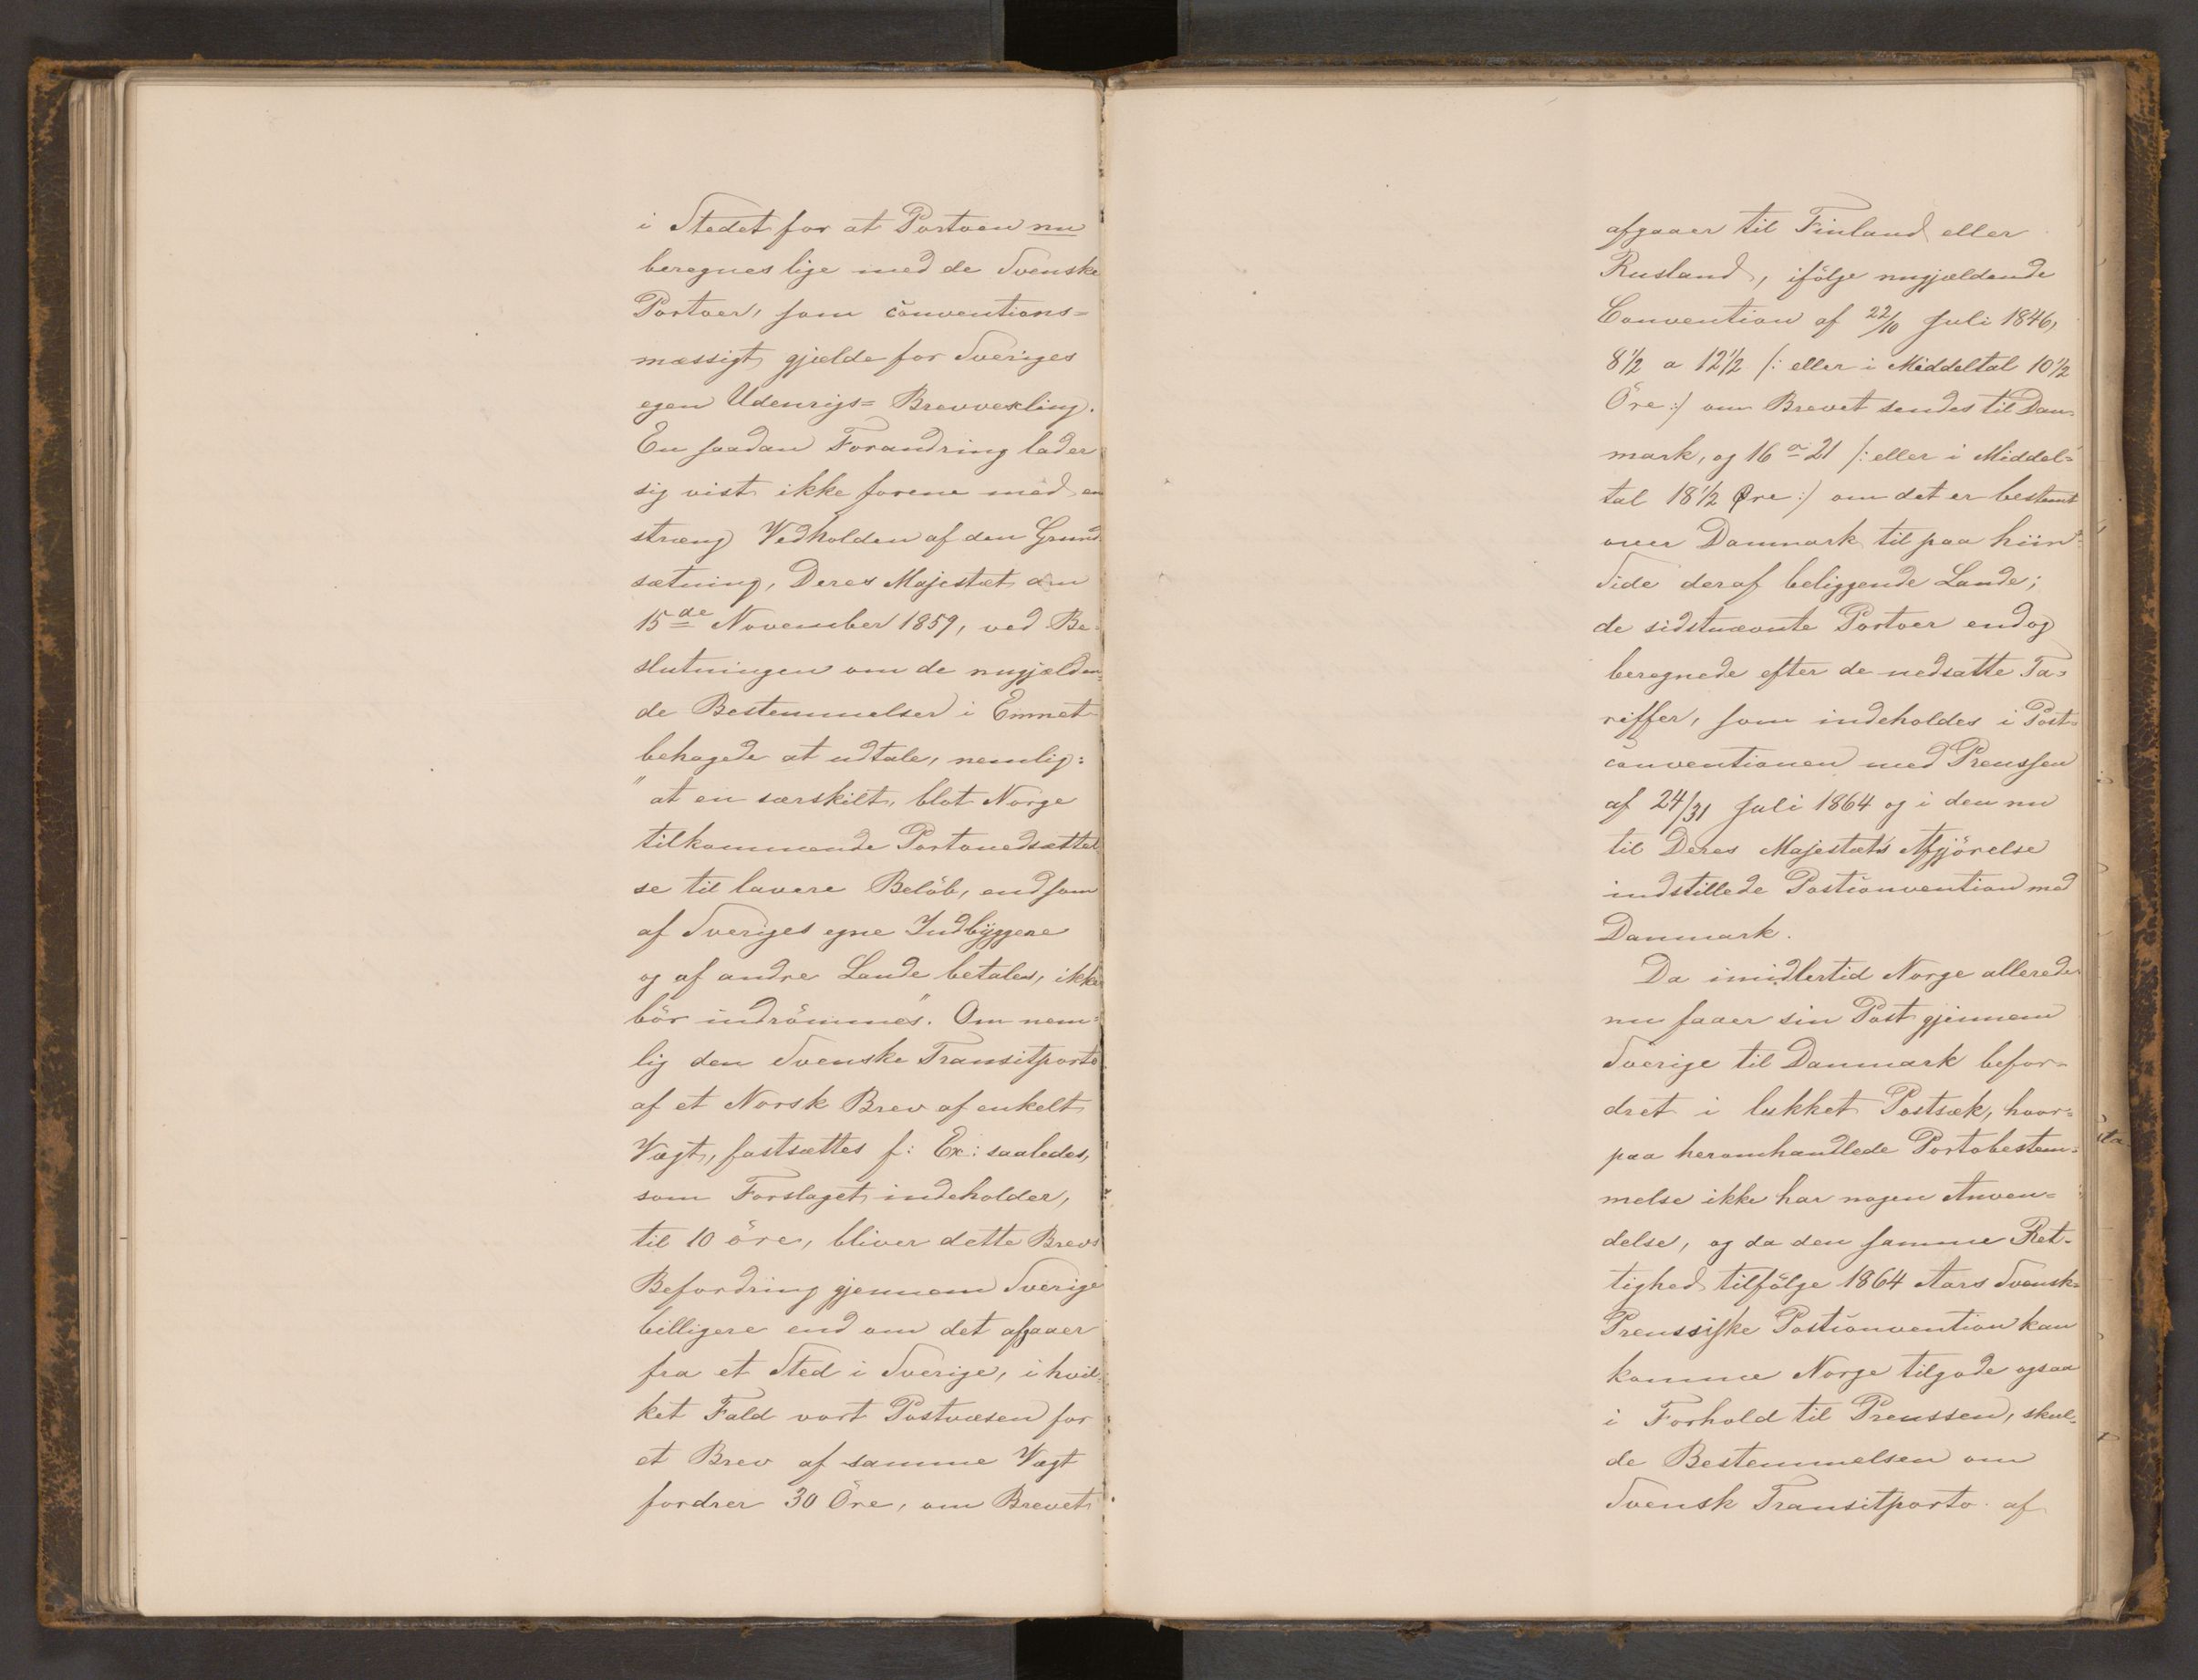 i Stedet for at Portoen nu
beregnes lige med de Svenske
Portoer, som conventions=
mæssigt gjælde for Sveriges
egen Udenrigs= Brevvexling.
En saadan Forandring lader
sig vist ikke forene med en
stræng Vedholden af den Grund
sætning, Deres Majestæt den
15de November 1859, ved Be-
slutningen om de nugjælden=
de Bestemmelser i Emnet
behagede at udtale, nemlig:
"at en særskilt, blot Norge
tilkommende Portonedsættel
se til lavere Belöb, end som
af Sveriges egne Indbyggere
og af andre Lande betales, ikke
bör indrömmes". Om nem=
lig den Svenske Transitporto
af et Norsk Brev af enkelt
Vægt, fastsættes f: Ex: saaledes,
som Forslaget indeholder,
til 10 öre, bliver dette Brevs
Befordring gjennem Sverige
billigere end om det afgaaer
fra et Sted i Sverige, i hvil=
ket Fald vort Postvæsen for
et Brev af samme Vægt
fordrer 30 Öre, om Brevet
afgaaer til Finland eller
Rusland, ifölge nugjældende
Convention af 22/10 Juli 1846,
8½ a 12½ /: eller i Middeltal 10½
Öre :/ om Brevet sendes til Dan=
mark, og 16 a 21 /: eller i Middel=
tal 18½ Øre :/ om det er bestemt
over Danmark til paa hiin
Side deraf beliggende Lande;
de sidstnævnte Portoer endog
beregnede efter de nedsatte Ta=
riffer, som indeholdes i Post=
conventionen med Preussen
af 24/31 Juli 1864 og i den nu
til Deres Majestæts Afgjörelse
indstillede Postconvention med
Danmark.
Da imidlertid Norge allerede
nu faaer sin Post gjennem
Sverige til Danmark befor=
dret i lukket Postsæk, hvor=
paa heromhandlede Portobestem=
melse ikke har nogen Anven=
delse, og da den samme Ret=
tighed tilfölge 1864 Aars Svensk=
Preussiske Postconvention kan
komme Norge tilgode ogsaa
i Forhold til Preussen, skul=
de Bestemmelsen om
Svensk Transitporto af